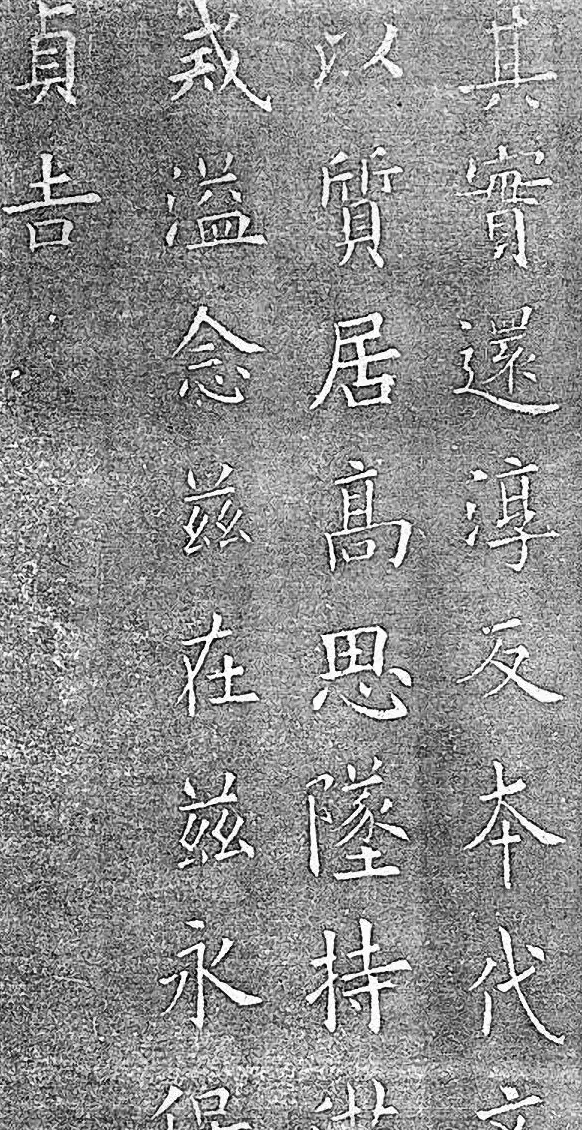 其實還淳反本代
以質居高思墜持
戒溢念茲在茲永
貞吉